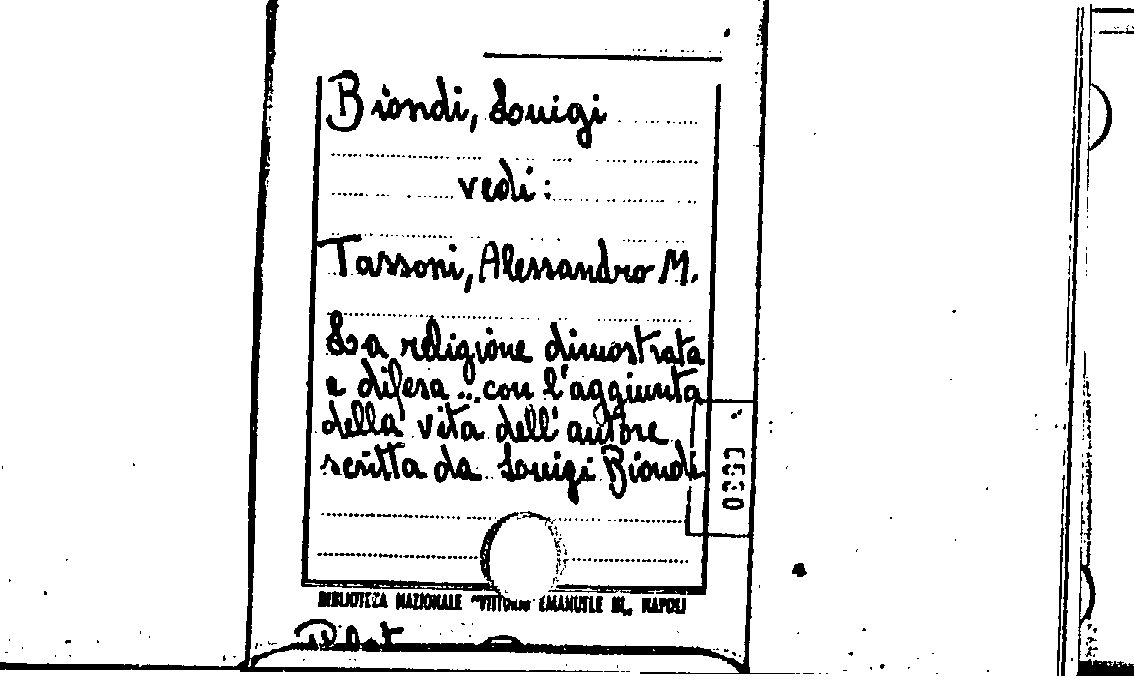 Biondi, Luigi
vedi:
Tassoni, Alessandro M.
La religione dimostrata
e difesa ... con l'aggiunta
della vita dell'autore
scritta da Luigi Biondi
BIBLIOTECA NAZIONALE "VITTORIO EMANUELE III„ NAPOLI